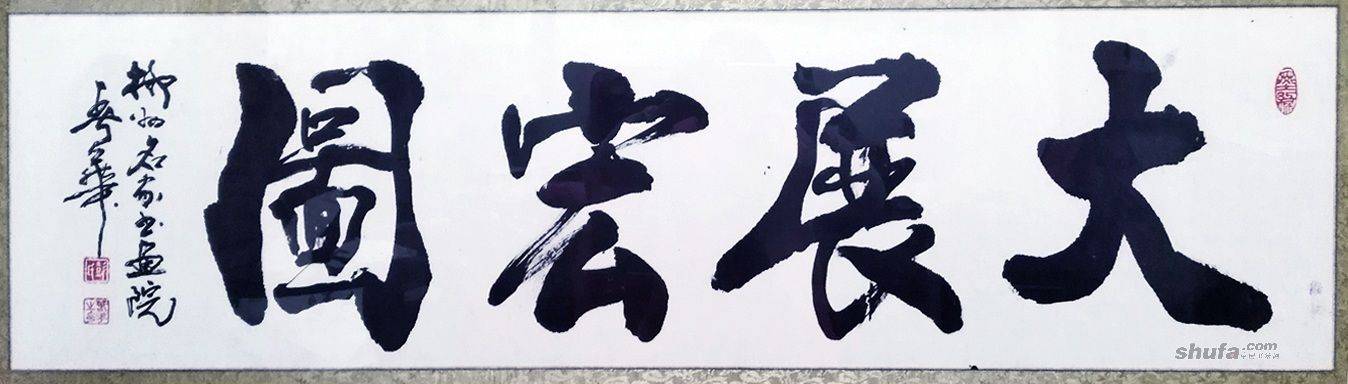 大展宏圖
柳州名家书画院
shufa.com